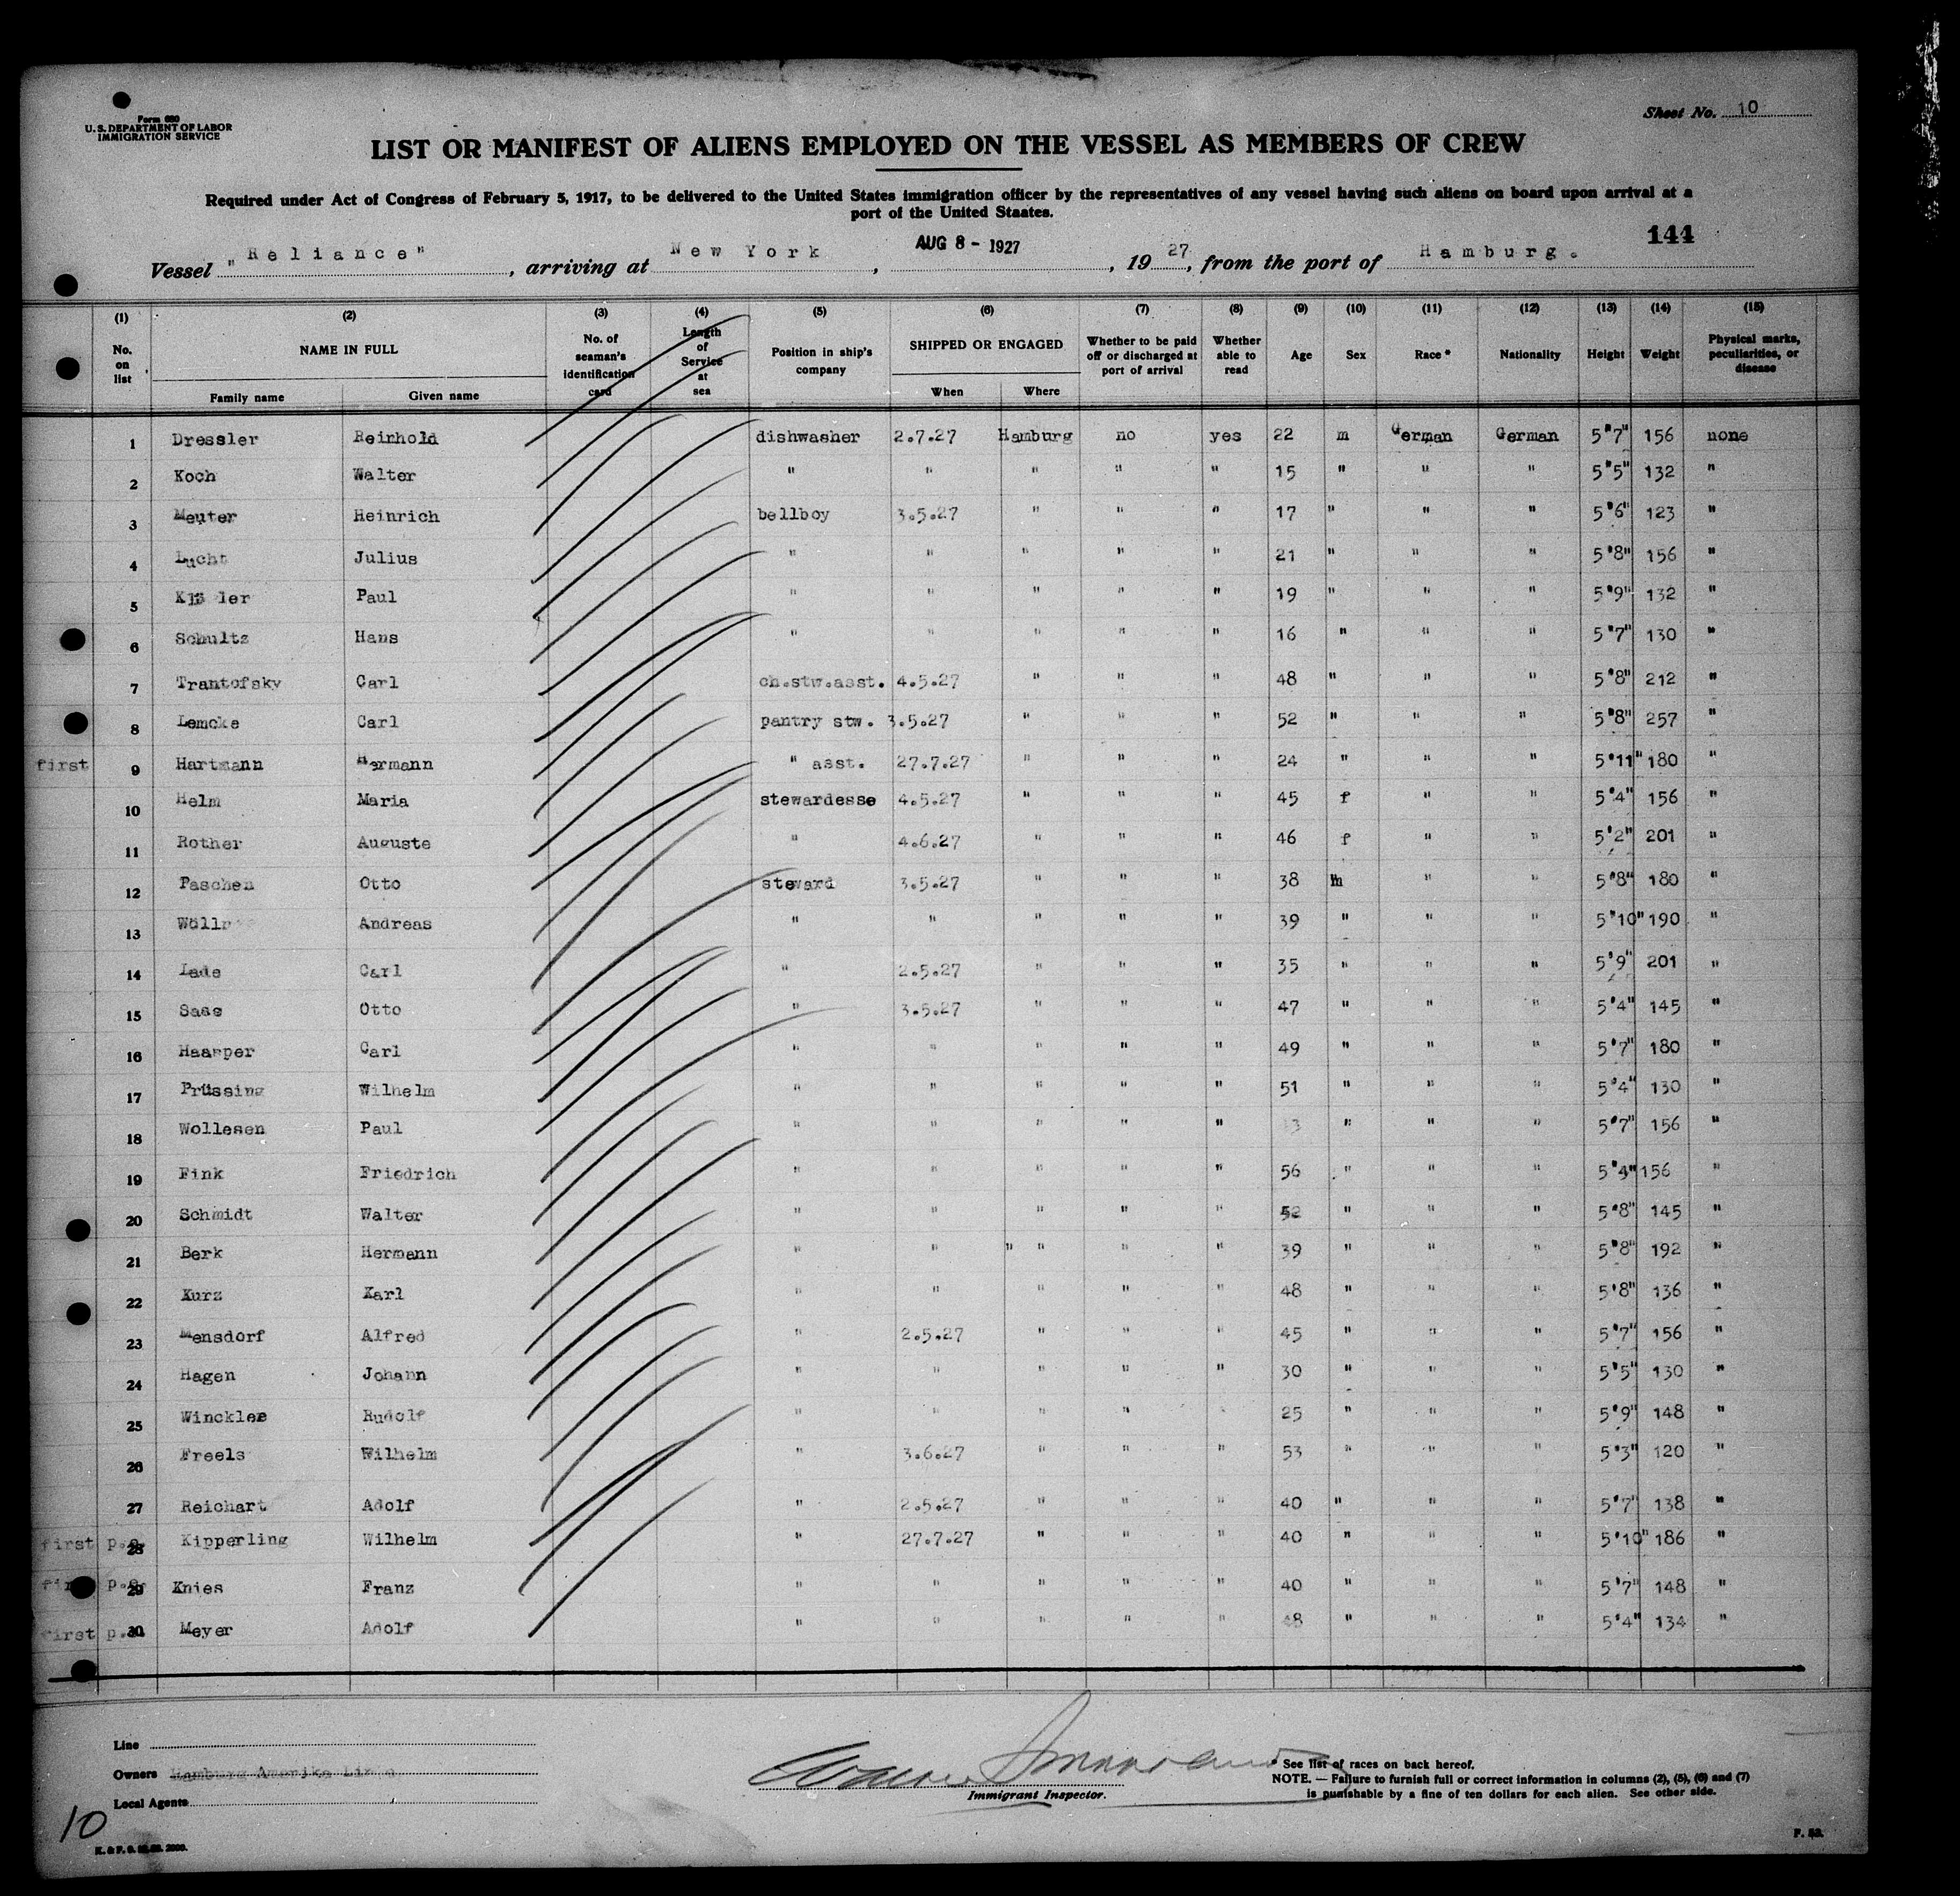 Form 680
U. S. DEPARTMENT OF LABOR
IMMIGRATION SERVICE
Sheet No. 10
LIST OR MANIFEST OF ALIENS EMPLOYED ON THE VESSEL AS MEMBERS OF CREW
Required under Act of Congress of February 5, 1917, to be delivered to the United States immigration officer by the representatives of any vessel having such aliens on board upon arrival at a
port of the United Staates.
144
Vessel "Reliance", arriving at New York, AUG 8 - 1927, 1927, from the port of Hamburg.
(1) (2) (3) (4) (5) (6) (7) (8) (9) (10) (11) (12) (13) (14) (15)
No. on list NAME IN FULL Family name Given name No. of seaman's identification card Length of Service at sea Position in ship's company SHIPPED OR ENGAGED When Where Whether to be paid off or discharged at port of arrival Whether able to read Age Sex Race * Nationality Height Weight Physical marks, peculiarities, or disease
1 Dressler Reinhold dishwasher 2.7.27 Hamburg no yes 22 m German German 5'7" 156 none
2 Koch Walter " " " " " 15 " " " 5'5" 132 "
3 Meuter Heinrich bellboy 3.5.27 " " " 17 " " " 5'6" 123 "
4 Lucht Julius " " " " " 21 " " " 5'8" 156 "
5 Paul " " " " " 19 " " " 5'9" 132 "
6 Schultz Hans " " " " " 16 " " " 5'7" 130 "
7 Trantofsky Carl ch.stw.asst. 4.5.27 " " " 48 " " " 5'8" 212 "
8 Lemcke Carl pantry stw. 3.5.27 " " " 52 " " " 5'8" 257 "
first 9 Hartmann Hermann " asst. 27.7.27 " " " 24 " " " 5'11" 180 "
10 Helm Maria stewardesse 4.5.27 " " " 45 f " " 5'4" 156 "
11 Rother Auguste " 4.6.27 " " " 46 f " " 5'2" 201 "
12 Paschen Otto steward 3.5.27 " " " 38 m " " 5'8" 180 "
13 Andreas " " " " " 39 " " " 5'10" 190 "
14 Lade Carl " 2.5.27 " " " 35 " " " 5'9" 201 "
15 Sass Otto " 3.5.27 " " " 47 " " " 5'4" 145 "
16 Haasper Carl " " " " " 49 " " " 5'7" 180 "
17 Prüssing Wilhelm " " " " " 51 " " " 5'4" 130 "
18 Wollesen Paul " " " " " " " " 5'7" 156 "
19 Fink Friedrich " " " " " 56 " " " 5'4" 156 "
20 Schmidt Walter " " " " " 52 " " " 5'8" 145 "
21 Berk Hermann " " " " " " 39 " " " 5'8" 192 "
22 Kurz Karl " " " " " 48 " " " 5'8" 136 "
23 Mensdorf Alfred " 2.5.27 " " " 45 " " " 5'7" 156 "
24 Hagen Johann " " " " " 30 " " " 5'5" 130 "
25 Winckler Rudolf " " " " " 25 " " " 5'9" 148 "
26 Freels Wilhelm " 3.6.27 " " " 53 " " " 5'3" 120 "
27 Reichart Adolf " 2.5.27 " " " 40 " " " 5'7" 138 "
first 28 Kipperling Wilhelm " 27.7.27 " " " 40 " " " 5'10" 186 "
first 29 Knies Franz " " " " " 40 " " " 5'7" 148 "
first 30 Meyer Adolf " " " " " 48 " " " 5'4" 134 "
Line
Owners Hamburg Amerika Linie
Local Agents
Immigrant Inspector.
* See list of races on back hereof.
NOTE. — Failure to furnish full or correct information in columns (2), (5), (6) and (7)
is punishable by a fine of ten dollars for each alien. See other side.
10